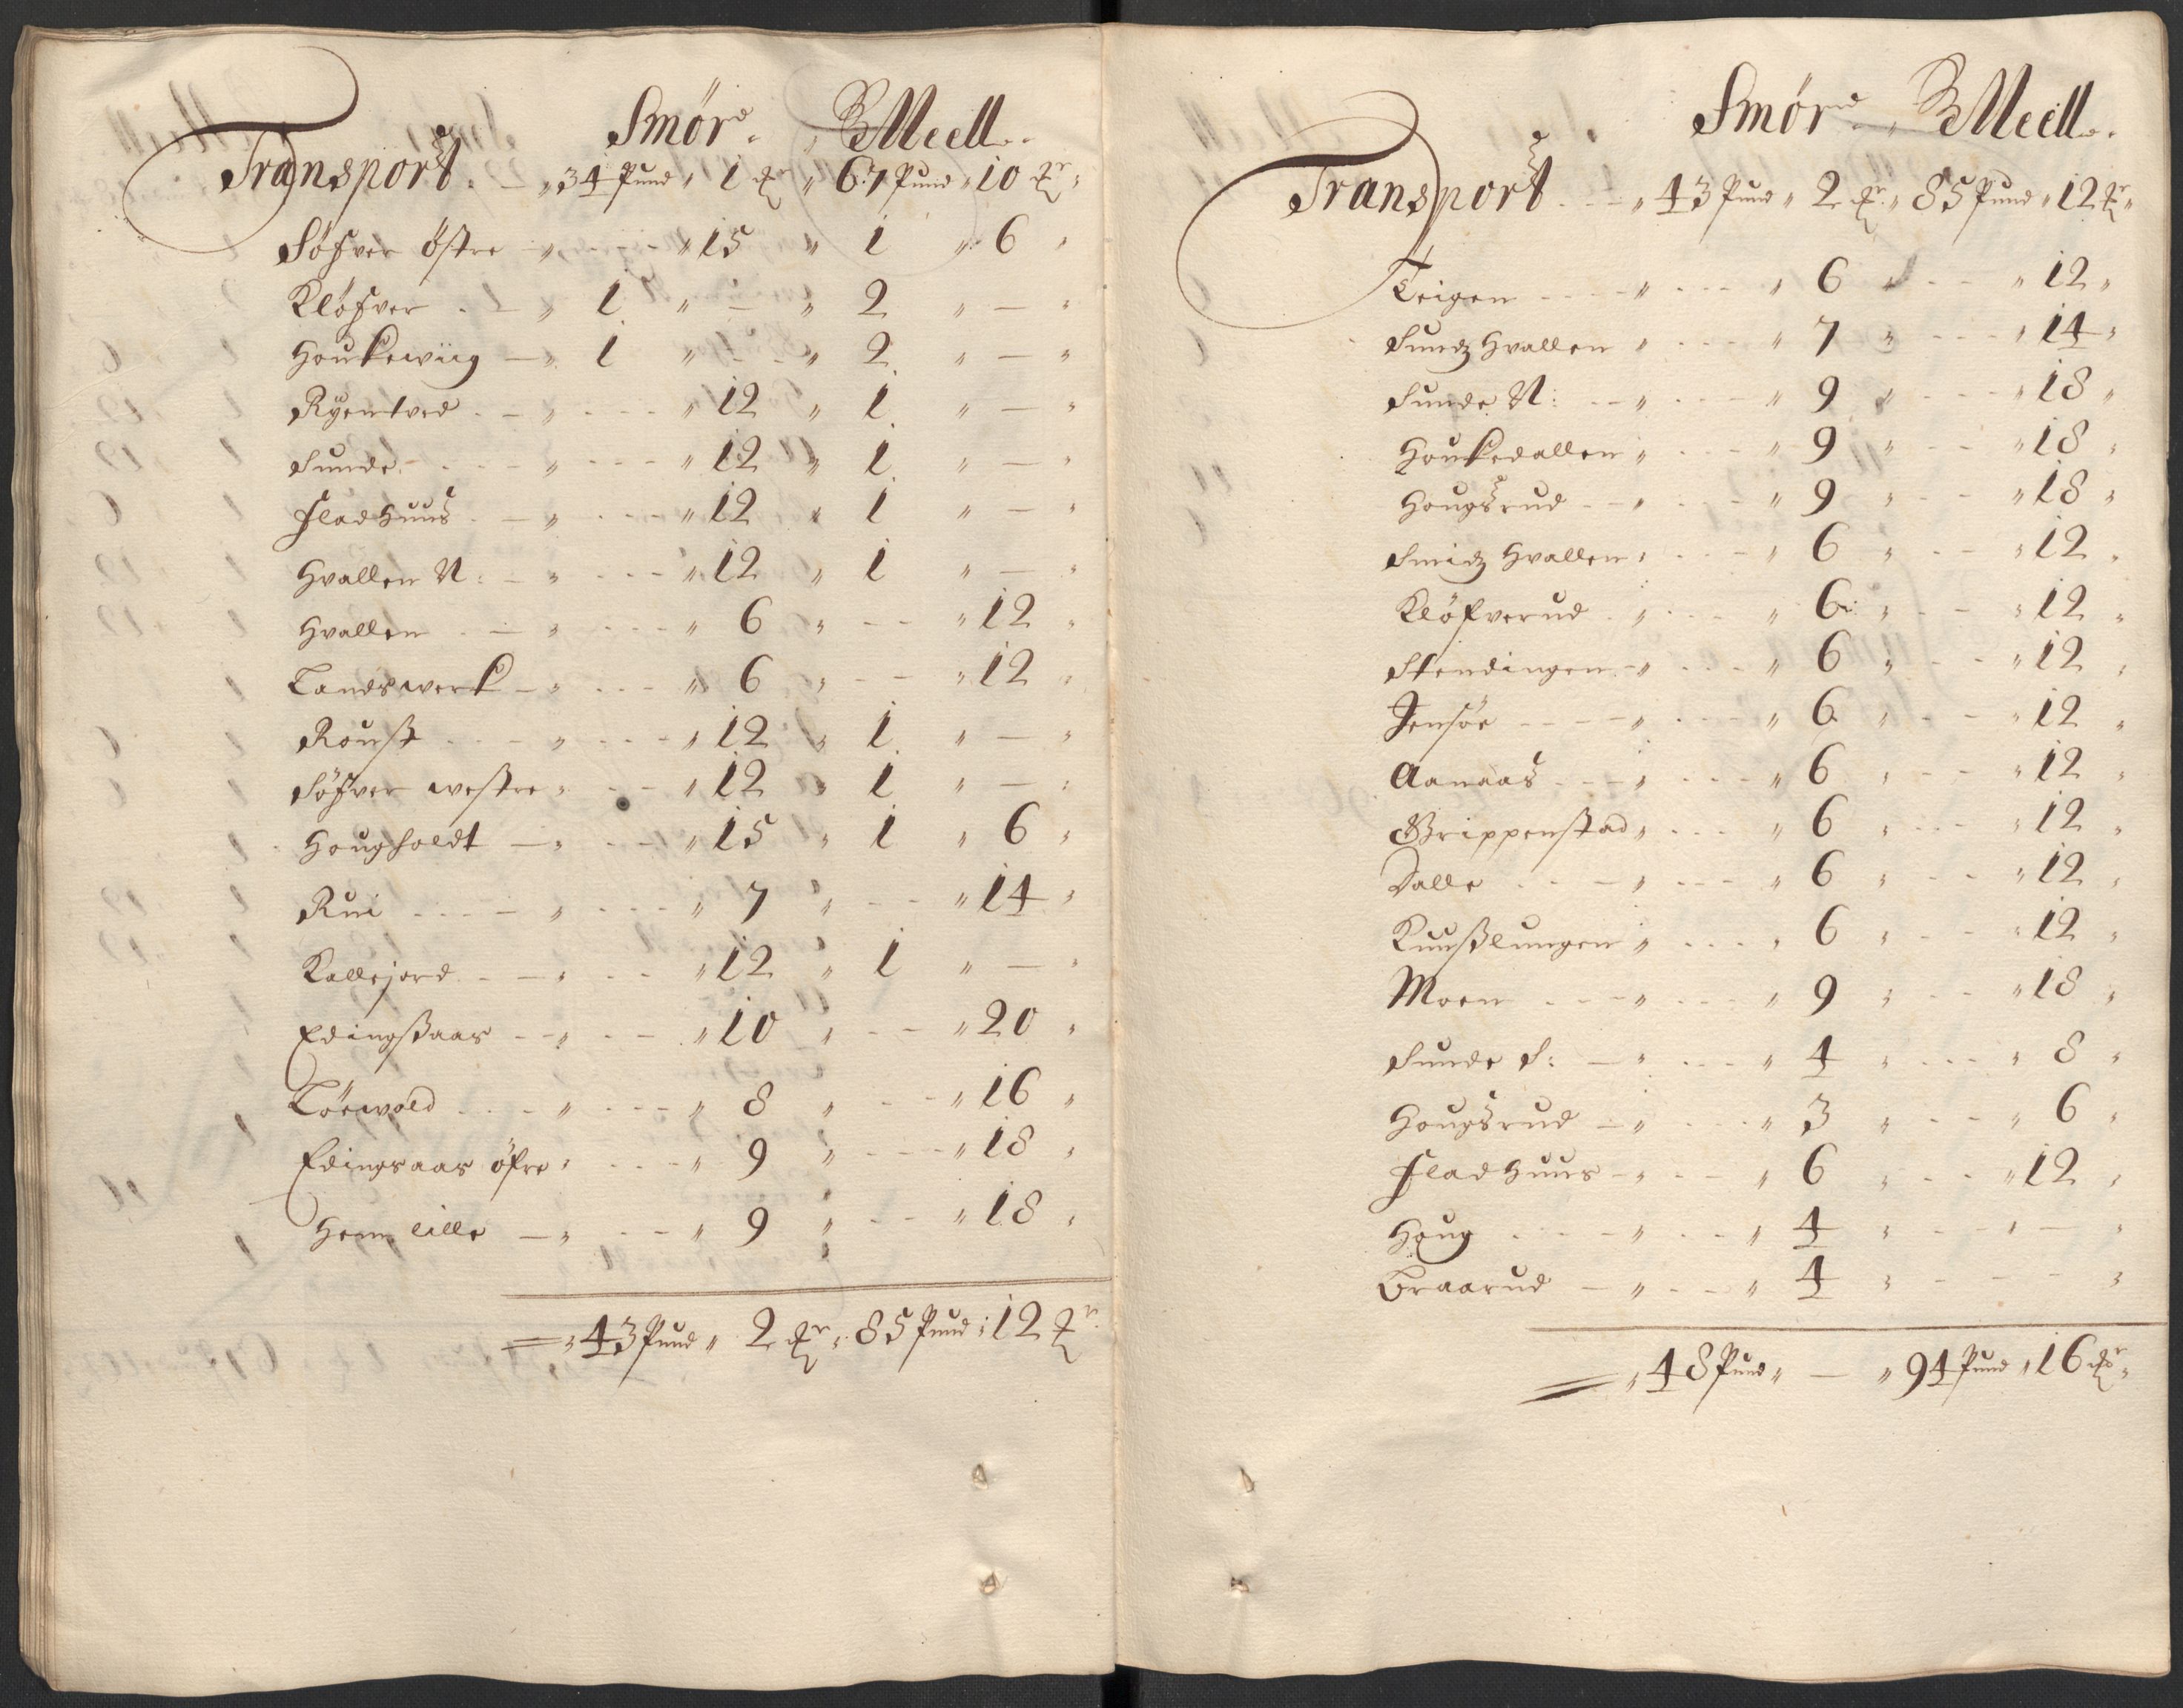 Smør " BMeell
Transport . — " 34 Pund " 1 " 67 Pund " 10
Söfver östre " - - - " 15 " 1 " 6 "
Klöfver . - — " 1 " — " 2 " — "
Houkewiig — " 1 " - - " 2 " — "
Ryentved . — " - - - " 12 " 1 " — "
Sunde - - - - " - - - " 12 " 1 " — "
Fladhuus . — " - - - " 12 " 1 " — "
Hvallen N: — " - - - " 12 " 1 " — "
Hvallen . — " - - - " 6 " - - " 12 "
Landswerk — " - - - " 6 " - - " 12 "
Rouß . . — " - - - " 12 " 1 " — "
Söfver westre " - - - " 12 " 1 " — "
Hougholdt — " - - - " 15 " 1 " 6 "
Rui - - - — " - - - " 7 " - - " 14 "
Kallejord . — " - - " 12 " 1 " — "
Edingßaas - — " - - - " 10 " - - " 20 "
Löewold . . — " - - - " 8 " - - " 16 "
Edingsaas öfre " - - - " 9 " - - - " 18 "
Hem lille — " - - - " 9 " - - " 18 "
= " 43 Pund " 2 " 85 Pund " 12
Smør " BMeell
Transport . - - " 43 Pund " 2 " 85 Pund " 12
Teigen - - - - " - - - " 6 " - - " 12 "
Sundz Hvallen " - - - " 7 " - - - " 14 "
Sunde N: - - " - - - " 9 " - - - " 18 "
Houkedallen " - - - " 9 " - - " 18 "
Hougsrud - - " - - - " 9 " - - " 18 "
Smidz Hvallen " - - - " 6 " - - " 12 "
Klöfverud . " - - - " 6 " - - " 12 "
Stendingen - " - - - " 6 " - - " 12 "
Jensöe - - - - " - - - " 6 " - - " 12 "
Aanaas - - - " - - - " 6 " - - " 12 "
Grippenstad " - - - " 6 " - - - " 12 "
Dalle . - - — " - - - " 6 " - - " 12 "
Kuußlungen " - - - " 6 " - - " 12 "
Moen - - - - " - - - " 9 " - - " 18 "
Sunde S: — " - - - " 4 " - - - " 8 "
Hougsrud — " - - - " 3 " - - - " 6 "
Fladhuus - " - - - " 6 " - - " 12 "
Houg . - - - " - - " 4 " - - " — "
Braarud — " - - " 4 " - - - - "
= " 48 Pund " — " 94 Pund " 16